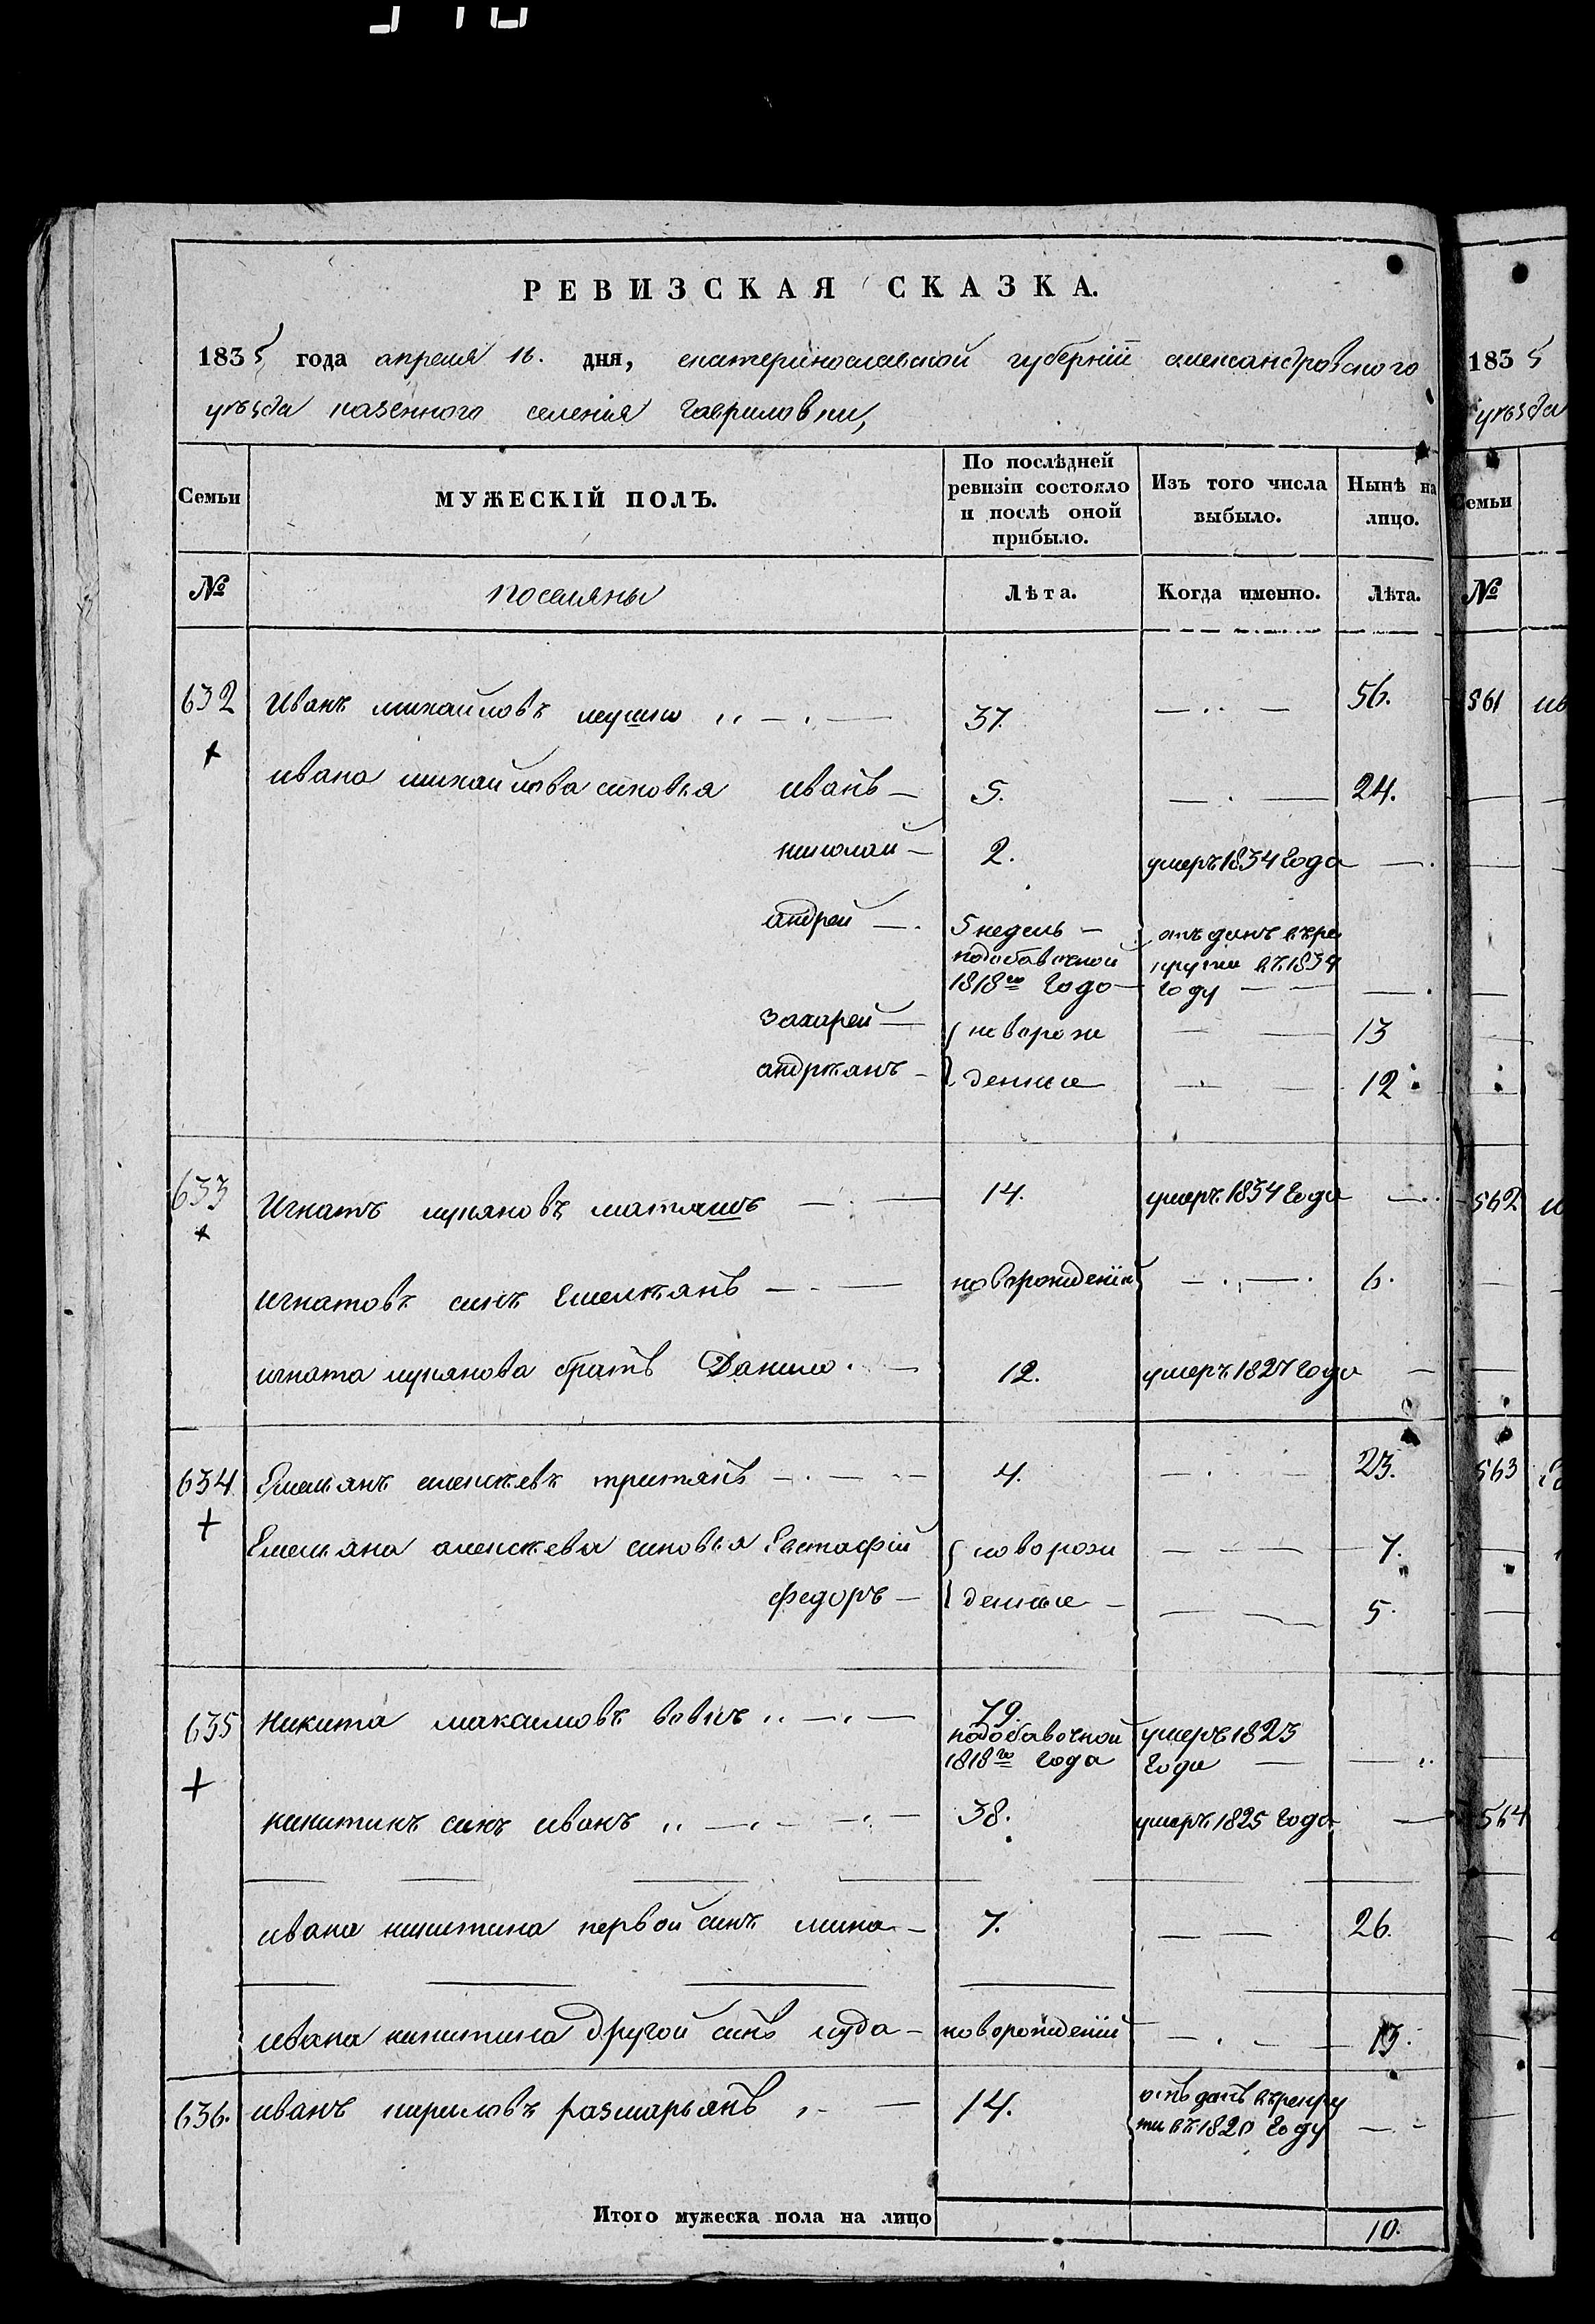 РЕВИЗСКАЯ СКАЗКА.
1835 года апреля 16. дня, екатеринославской губерніи александровского
уезда казенного селенія Гавриловки,
Семьи
МУЖЕСКІЙ ПОЛЪ.
По послѣдней ревизіи состояло и послѣ оной прибыло.
Изъ того числа выбыло.
Нынѣ на лицо.
№
поселяны
Лѣта.
Когда именно.
Лѣта.
632 Иванъ михайловъ 37. 56.
ивана михайлова синовья иванъ 5. 24.
николай 2. умеръ 1834 Года
андрей 5 недель подобавочной 1818го Года отъданъ въре круты въ 1834 Году
Захарей новорож 13
андреянъ денные 12
633 Игнатъ лукяновъ матяшъ 14. умеръ 1834 Года
игнатовъ синъ Емелеянъ новорожденій 6.
игната лукянова братъ Данило 12. умеръ 1827 Года
634 Емельянъ алексеевъ третякъ 4. 23.
Емельяна алексеева синовья Евстафій новорож 7.
федоръ денные 5.
635 Никита максимовъ вовкъ 79. подобавочной 1818го Года умеръ 1823 Года
никитинъ синъ иванъ 38. умеръ 1825 Года
ивана никитина первой синъ мина 7. 26.
ивана никитина другой синъ иуда новорожденій 13.
636. иванъ кириловъ размарьянъ 14. отъданъ върекру ты въ 1820 Году
Итого мужеска пола на лицо 10.
1835
уезда
Семьи
№
561
562
563
564